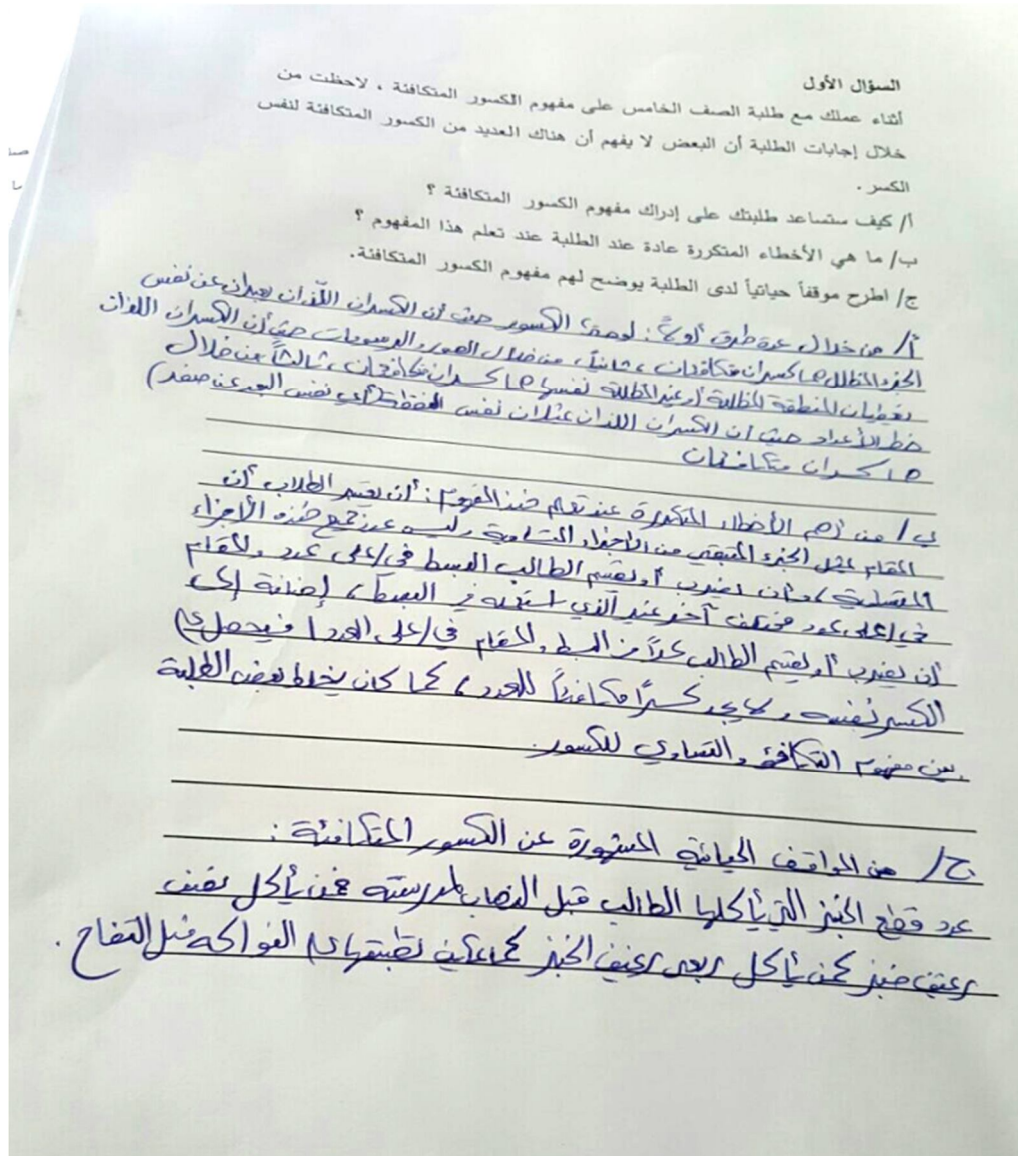 السؤال الأول
أثناء عملك مع طلبة الصف الخامس على مفهوم الكسور المتكافئة ، لاحظت من
خلال إجابات الطلبة أن البعض لا يفهم أن هناك العديد من الكسور المتكافئة لنفس
الكسر .
أ/ كيف ستساعد طلبتك على إدراك مفهوم الكسور المتكافئة ؟
ب/ ما هي الأخطاء المتكررة عادة عند الطلبة عند تعلم هذا المفهوم ؟
ج/ اطرح موقفاً حياتياً لدى الطلبة يوضح لهم مفهوم الكسور المتكافئة.
أ/ من خلال عدة طرق أولاً : لوحة الكسور حيث أن الكسران اللّذان يعبران عن نفس
الجزء المظلل هما كسران متكافئان ، ثانياً ، من خلال الصور والرسومات حيث أن الكسران اللذان
يغطيان المنطقة المظللة أو غير المظللة نفسها هما كسران متكافئان ، ثالثاً من خلال
خط الأعداد حيث ان الكسران اللذان يمثلان نفس النقطة (أي نفس البعد عن صفر)
هما كسران متكافئان
ب/ من أهم الأخطاء المتكررة عند تعلم هذا المفهوم : أن يعتبر الطلاب أن
المقام يمثل الجزء المتبقي من الأجزاء المتساوية وليس عدد جميع هذه الأجزاء
المتساوية ، وأن يضرب أو يقسم الطالب البسط في/على عدد والمقام
في/على عدد مختلف آخر عند الذي استخدمه في البسط ، إضافة إلى
أن يضرب أو يقسم الطالب كلاً من البسط والمقام في/على العدد 1 فيحصل على
الكسر نفسه ولا يجد كسراً مكافئاً للعدد ، كما كان يخلط بعض الطلبة
بين مفهوم التكافؤ والتساوي للكسور .
ج/ من المواقف الحياتية المشهورة عن الكسور المتكافئة :
عدد قطع الخبز التي يأكلها الطالب قبل الذهاب لمدرسته فمن يأكل نصف
رغيف خبز كمن يأكل ربعي رغيف الخبز كما يمكن تطبيقها على الفواكه مثل التفاح .